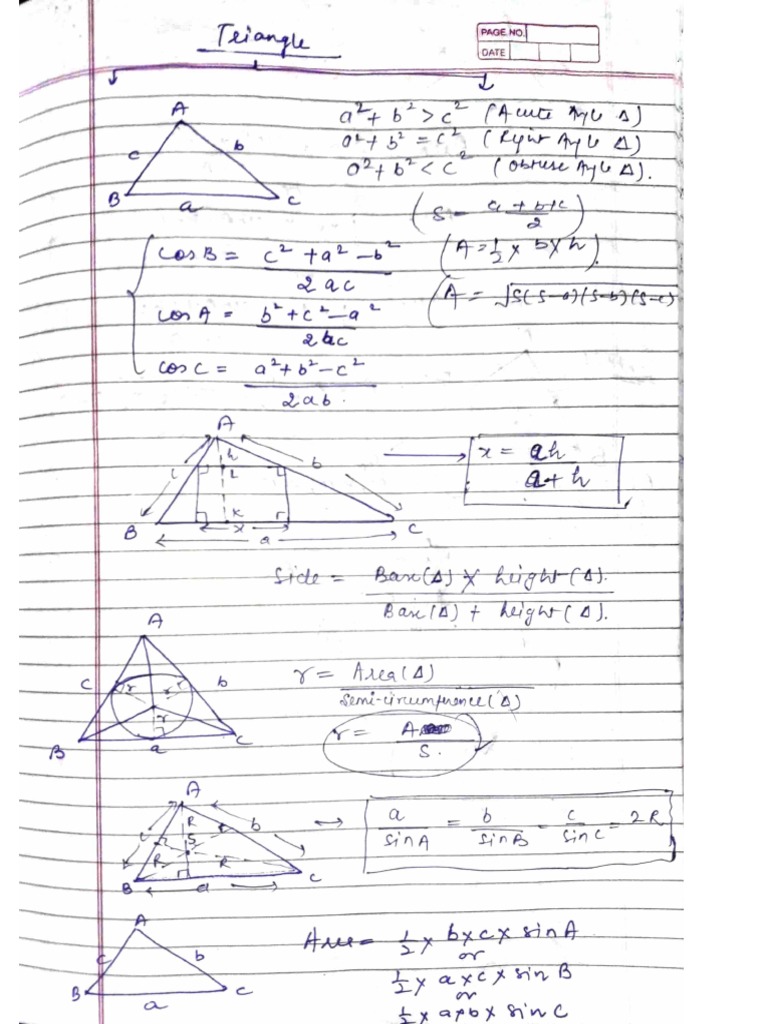 Triangle
PAGE NO.
DATE
A
c b
B a C
a² + b² > c² (Acute Angle Δ)
a² + b² = c² (Right Angle Δ)
a² + b² < c² (Obtuse Angle Δ).
(S = a + b + c / 2)
(A = 1/2 × b × h).
(A = √S(S-a)(S-b)(S-c)
cos B = c² + a² - b² / 2ac
cos A = b² + c² - a² / 2bc
cos C = a² + b² - c² / 2ab.
A
h
c L b
B K x r C
a
x = ah / a + h
Side = Base(Δ) × height(Δ). / Base(Δ) + height(Δ).
A
c r r b
r
B a C
r = Area(Δ) / semi-circumference(Δ)
r = A / S.
A
c R b
S
R R
B a C
a / sin A = b / sin B = c / sin C = 2R
A
c b
B a C
Area = 1/2 × b × c × sin A
or
1/2 × a × c × sin B
or
1/2 × a × b × sin C